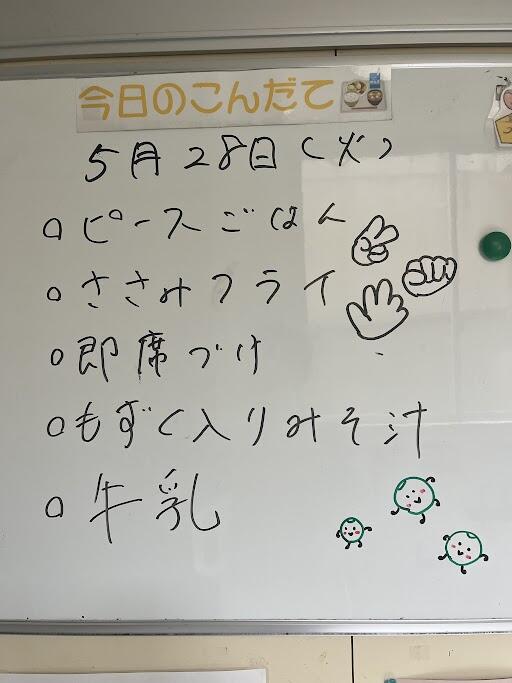 今日のこんだて
5月28日(火)
○ピースごはん
○ささみフライ
○即席づけ
○もずく入りみそ汁
○牛乳